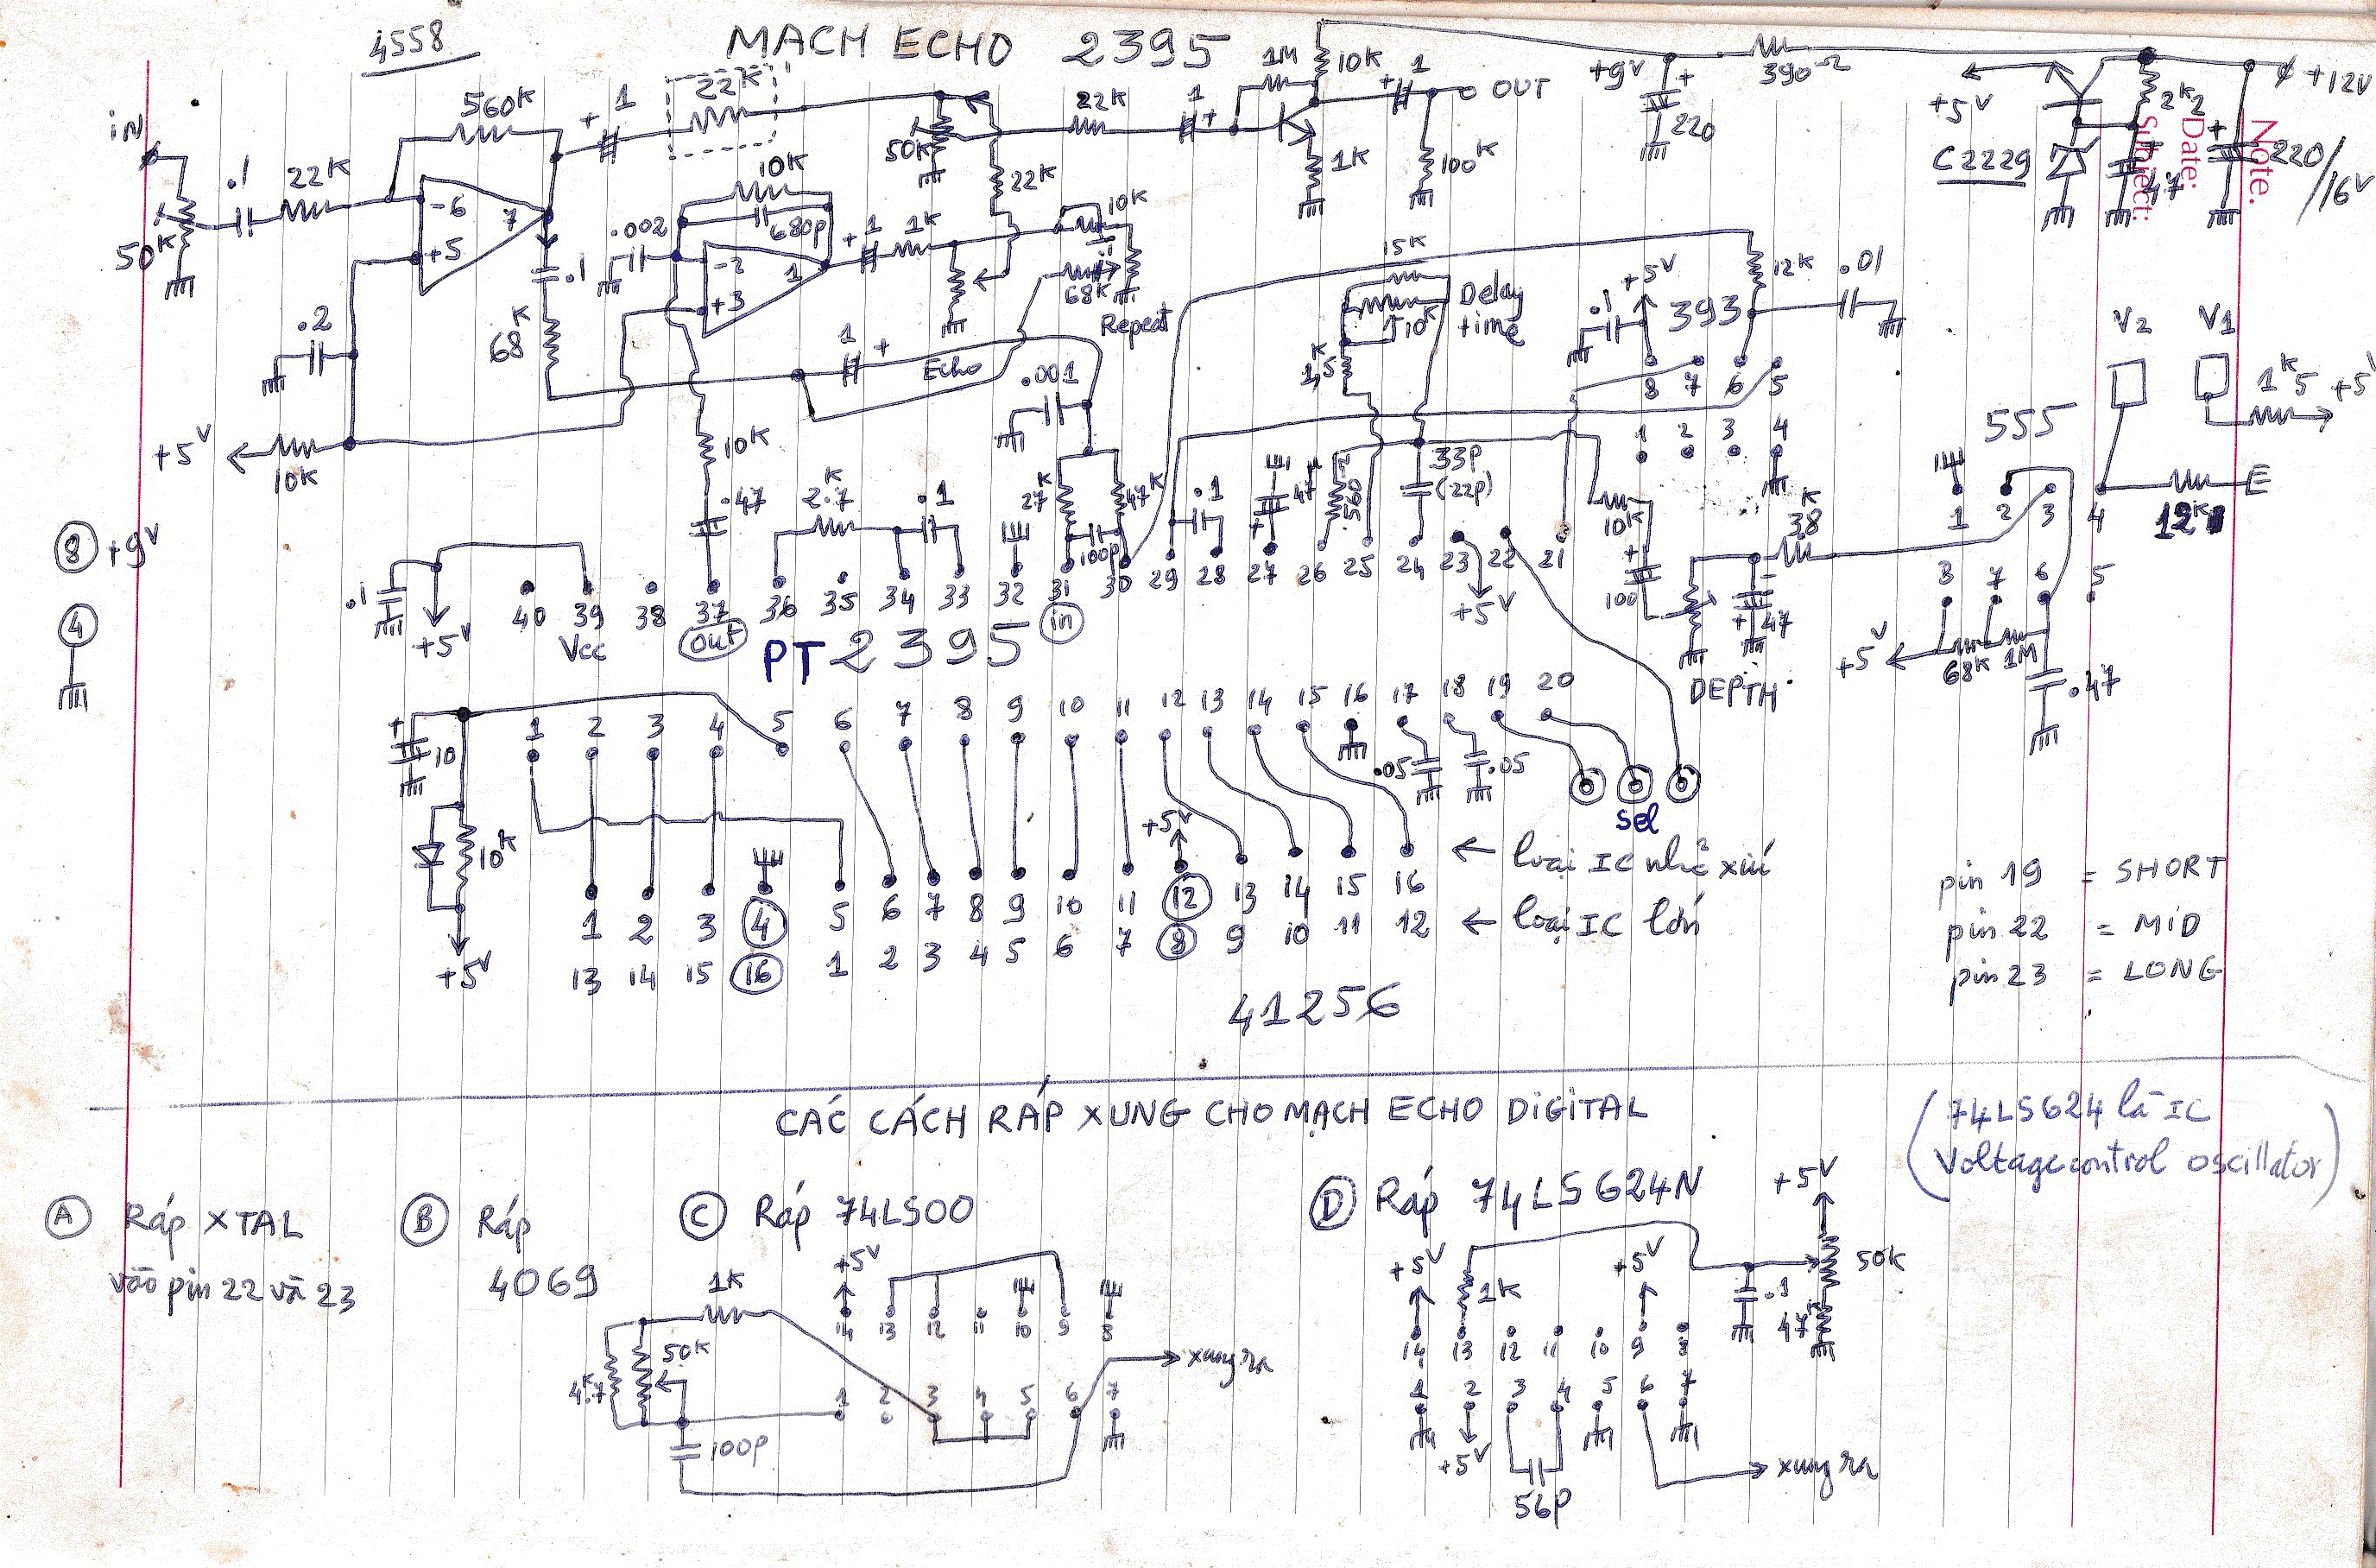 4558
MACH ECHO 2395
iN
50K
.1
22K
560K
+ 1
22K
-6
+5
7
.1
68K
.2
+5V
10K
.002
10K
680p
-2
+3
1
+ 1
1K
50K
22K
22K
10K
68K
Repeat
1 +
Echo
1 +
1M
10K
1K
+ 1
OUT
100K
+9V
+
220
390Ω
+12V
+5V
2K2
C2229
47
+
220/16V
Note.
Date:
Subject:
15K
10K
Delay time
1,5K
12K
.01
+5V
.1
393
8 7 6 5
1 2 3 4
V2 V1
1K5 +5V
555
12K
E
1 2 3 4
8 7 6 5
+5V
68K 1M
.47
38K
10K
+ 100
+ 47
DEPTH
8 +9V
4
.1
+5V
10K
.47
2.7K
.1
.001
27K
47K
100p
.1
+ 47
560
33p
(22p)
40 39 38 37 36 35 34 33 32 31 30 29 28 27 26 25 24 23 22 21
Vcc
out
in
+5V
PT2395
+ 10
10K
+5V
1 2 3 4 5 6 7 8 9 10 11 12 13 14 15 16 17 18 19 20
.05 .05
sel
+5V
1 2 3 4 5 6 7 8 9 10 11 12 13 14 15 16 ← loại IC nhỏ xíu
13 14 15 16 1 2 3 4 5 6 7 8 9 10 11 12 ← loại IC lớn
41256
pin 19 = SHORT
pin 22 = MiD
pin 23 = LONG
CÁC CÁCH RÁP XUNG CHO MẠCH ECHO DiGiTAL
(74LS624 là IC
Voltage control oscillator)
A Ráp XTAL
vào pin 22 và 23
B Ráp
4069
C Ráp 74LS00
1K
+5V
14 13 12 11 10 9 8
50K
4.7K
1 2 3 4 5 6 7
100p
xung ra
D Ráp 74LS624N
+5V
+5V
1K
+5V
50K
.1
47K
14 13 12 11 10 9 8
1 2 3 4 5 6 7
+5V
56p
xung ra